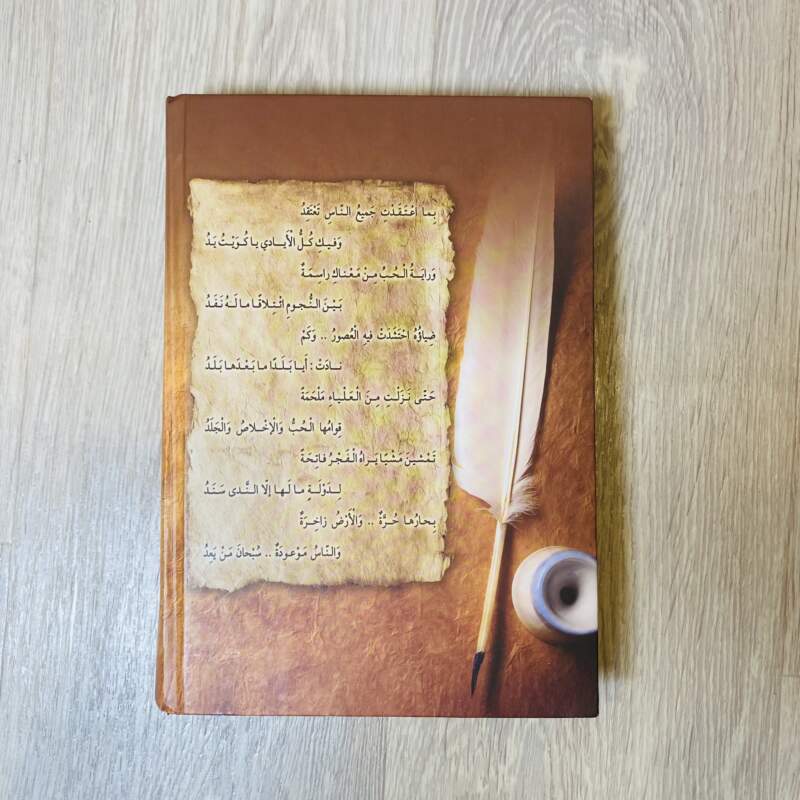 بِما اعْتَقَدْتِ جَمِيعُ النّاسِ تَعْتَقِدُ
وَفيكِ كُلُّ الْأَيادي يا كُوَيْتُ يَدُ
وَرايَةُ الْحُبِّ مِنْ مَعْناكِ راسِمَةٌ
بَيْنَ النُّجومِ ائْتِلاقًا ما لَهُ نَفَدُ
ضِياؤُهُ احْتَشَدَتْ فيهِ الْعُصورُ .. وَكَمْ
نادَتْ : أَيا بَلَدًا ما بَعْدَها بَلَدُ
حَتّى نَزَلْتِ مِنَ الْعَلْياءِ مَلْحَمَةً
قِوامُها الْحُبُّ وَالْإِخْلاصُ وَالْجَلَدُ
تَمْشينَ مَشْيًا يَراهُ الْفَجْرُ فاتِحَةً
لِدَوْلَةٍ ما لَها إلّا النَّدى سَنَدُ
بِحارُها حُرَّةٌ .. وَالْأَرْضُ زاخِرَةٌ
وَالنّاسُ مَوْعودَةٌ .. سُبْحانَ مَنْ يَعِدُ